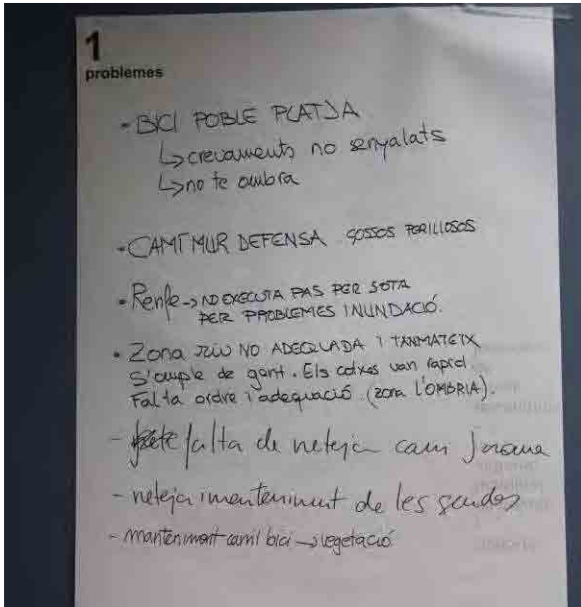 1
problemes
- BICI POBLE PLATJA
↳ creuaments no senyalats
↳ no te ombra
- CAMÍ MUR DEFENSA. GOSSOS PERILLOSOS
• Renfe → NO EXECUTA PAS PER SOTA
PER PROBLEMES INUNDACIÓ.
• Zona RIU NO ADEQUADA I TANMATEIX
S'omple de gent. Els cotxes van rapid.
Falta ordre i adequació. (zona L'OMBRIA).
- falta de neteja cami
- neteja i manteniment de les sendes
- manteniment camí bici → vegetació